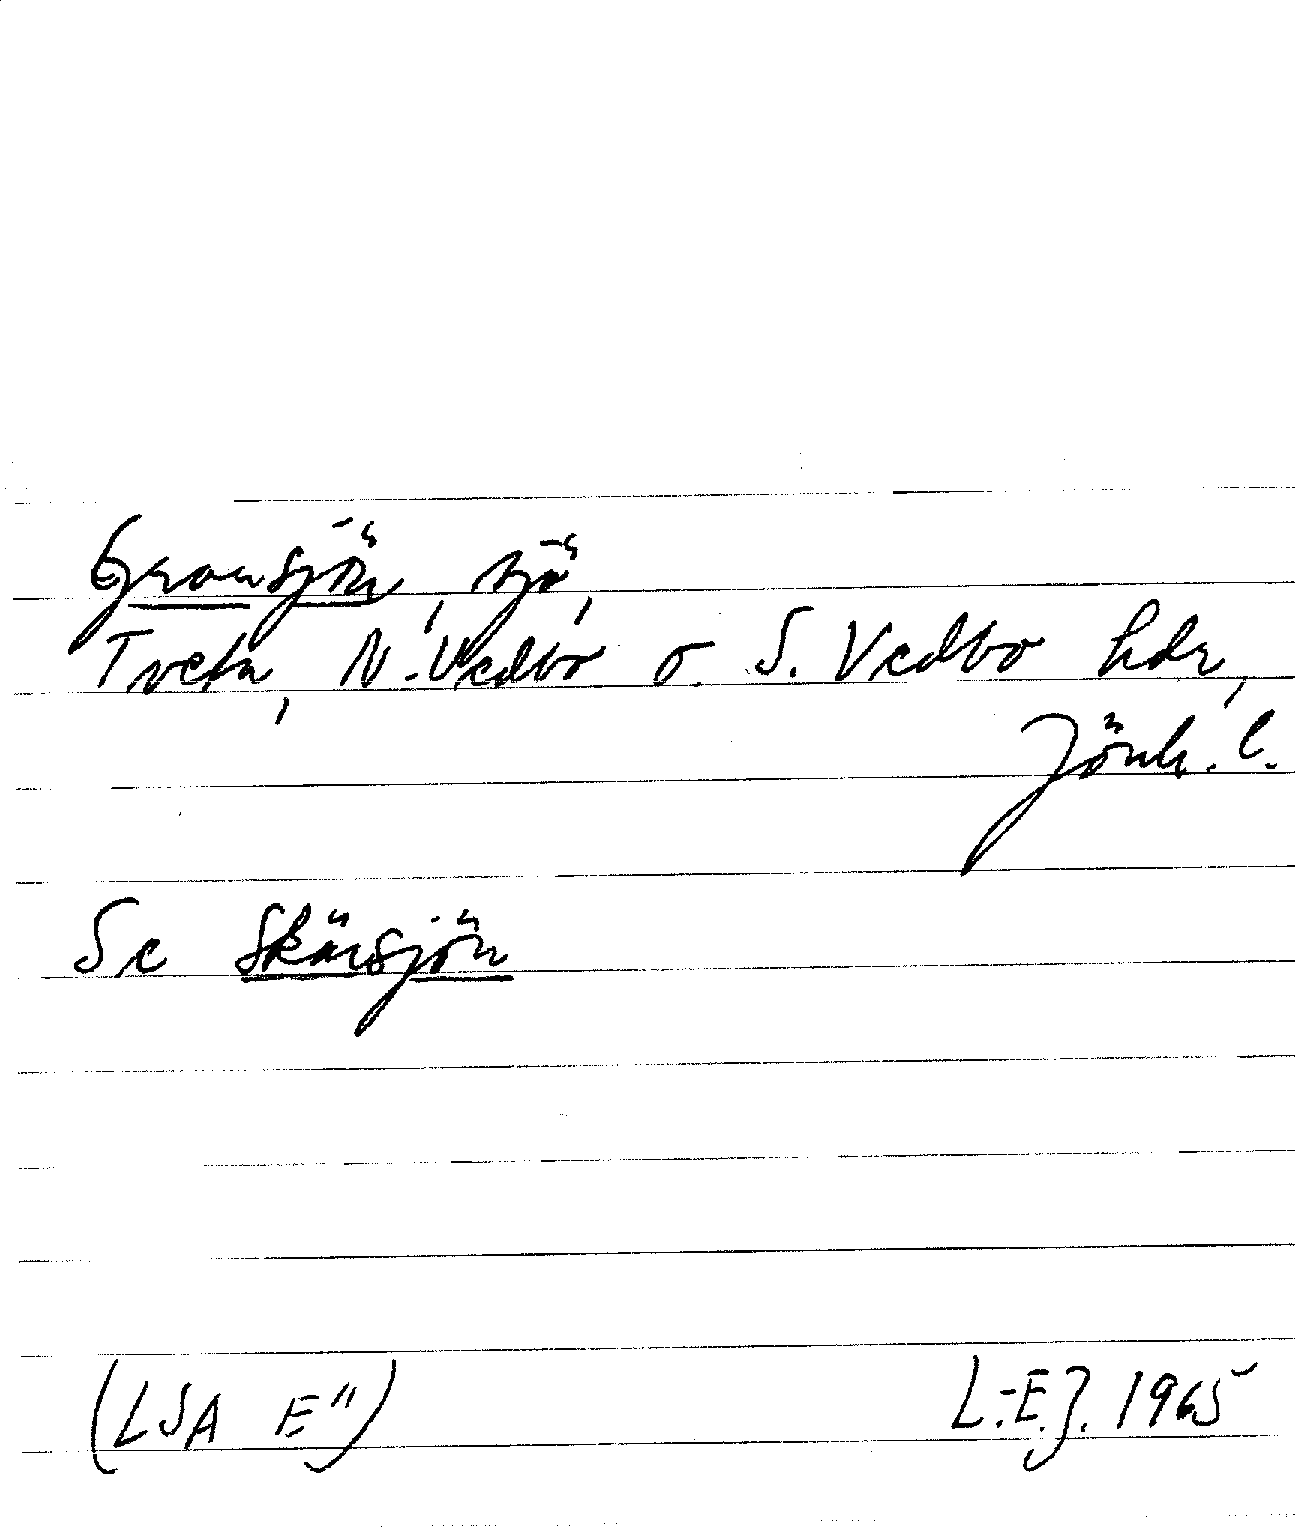 Gransjön, sjö,
Tveta, N. Vedbo o. S. Vedbo hdr,
Jönk. l.
Se Skärsjön
(LSA E")
L.-E.J. 1965